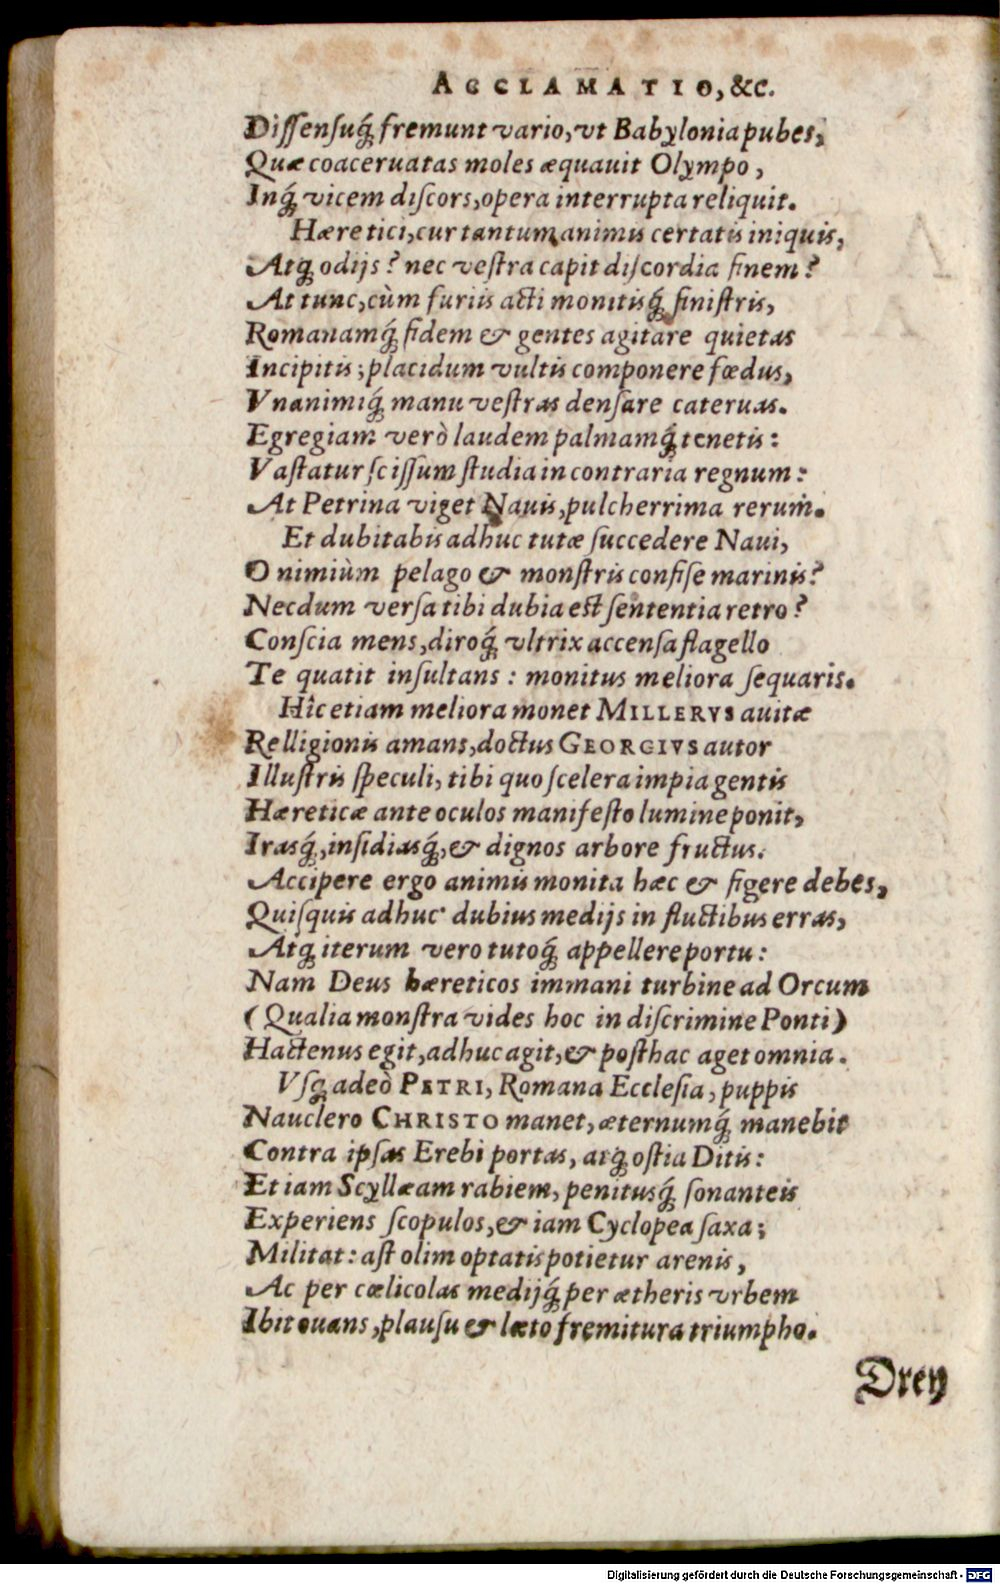 ACCLAMATIO, &c.
Diſſenſuq́; fremunt vario, vt Babylonia pubes,
Quæ coaceruatas moles æquauit Olympo,
Inq́; vicem diſcors, opera interrupta reliquit.
Hæretici, cur tantum animis certatis iniquis,
Atq; odijs? nec veſtra capit diſcordia finem?
At tunc, cùm furiis acti monitisq́; ſiniſtris,
Romanamq́; fidem & gentes agitare quietas
Incipitis; placidum vultis componere fœdus,
Vnanimiq́; manu veſtras denſare cateruas.
Egregiam verò laudem palmamq́; tenetis:
Vaſtatur ſciſſum ſtudia in contraria regnum:
At Petrina viget Nauis, pulcherrima rerum.
Et dubitabis adhuc tutæ ſuccedere Naui,
O nimiùm pelago & monſtris confiſe marinis?
Necdum verſa tibi dubia eſt ſententia retro?
Conſcia mens, diroq́; vltrix accenſa flagello
Te quatit inſultans: monitus meliora ſequaris.
Hîc etiam meliora monet MILLERVS auitæ
Relligionis amans, doctus GEORGIVS autor
Illuſtris ſpeculi, tibi quo ſcelera impia gentis
Hæreticæ ante oculos manifeſto lumine ponit,
Irasq́;, inſidiasq́;, & dignos arbore fructus.
Accipere ergo animis monita hæc & figere debes,
Quiſquis adhuc dubius medijs in fluctibus erras,
Atq; iterum vero tutoq́; appellere portu:
Nam Deus hæreticos immani turbine ad Orcum
(Qualia monſtra vides hoc in diſcrimine Ponti)
Hactenus egit, adhuc agit, & poſthac aget omnia.
Vſq; adeò PETRI, Romana Eccleſia, puppis
Nauclero CHRISTO manet, æternumq́; manebit
Contra ipſas Erebi portas, atq; oſtia Ditis:
Et iam Scyllæam rabiem, penitusq́; ſonanteis
Experiens ſcopulos, & iam Cyclopea ſaxa;
Militat: aſt olim optatis potietur arenis,
Ac per cœlicolas medijq́; per ætheris vrbem
Ibit ouans, plauſu & læto fremitura triumpho.
Drey
Digitalisierung gefördert durch die Deutsche Forschungsgemeinschaft - DFG